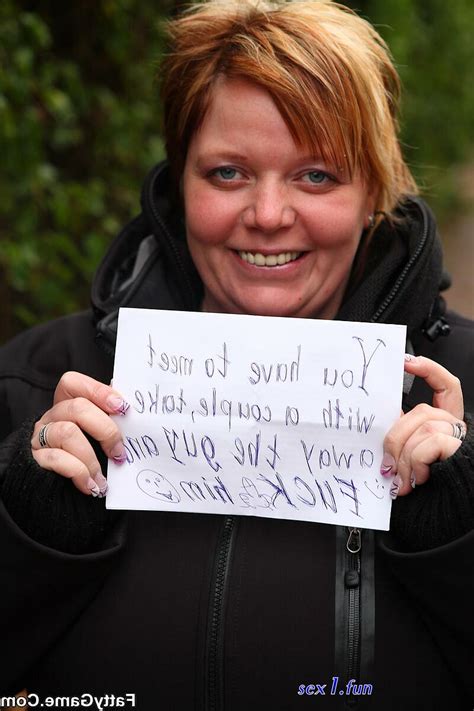 You have to meet
with a couple, take
away the guy and
Fuck him
FattyGame.Com
sex1.fun